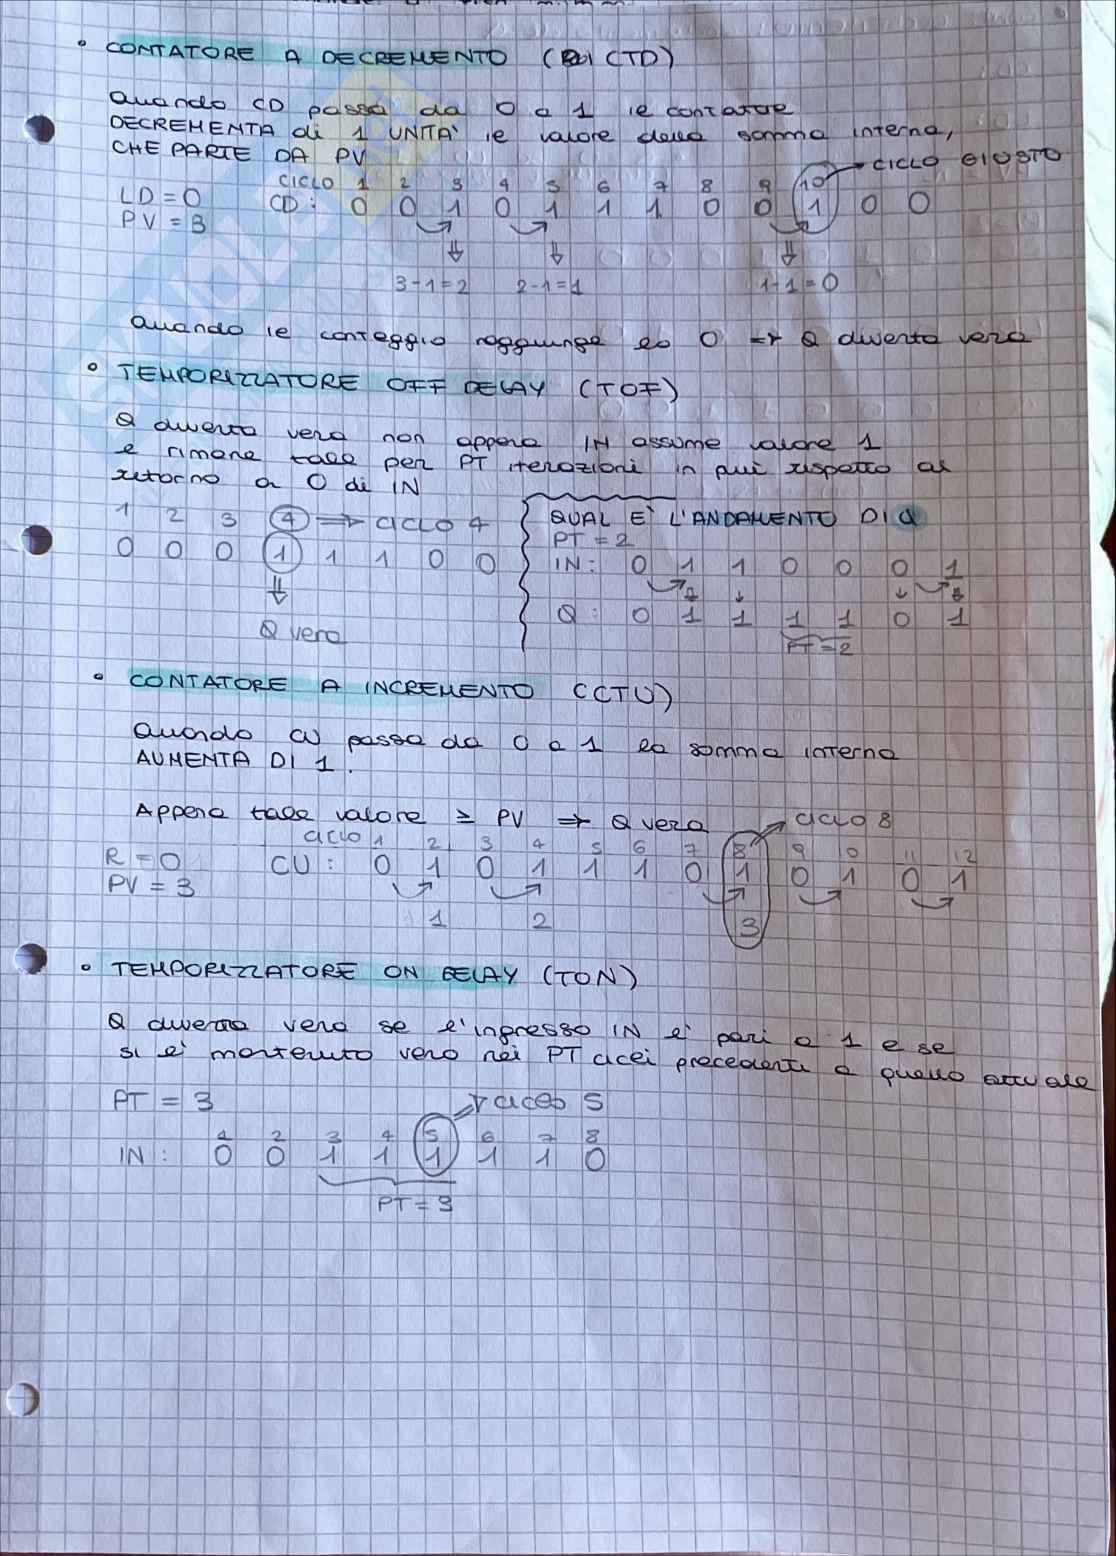 • CONTATORE A DECREMENTO ( CTD)
Quando CD passa da 0 a 1 il contatore
DECREMENTA di 1 UNITA' il valore della somma interna,
CHE PARTE DA PV
→ CICLO GIUSTO
CICLO 1 2 3 4 5 6 7 8 9 10
LD = 0 CD : 0 0 1 0 1 1 1 0 0 1 0 0
PV = 3
3-1=2 2-1=1 1-1=0
Quando il conteggio raggiunge lo 0 → Q diventa vera
• TEMPORIZZATORE OFF DELAY (TOF)
Q diventa vera non appena IN assume valore 1
e rimane tale per PT iterazioni in più rispetto al
ritorno a 0 di IN
1 2 3 4 ⇒ ciclo 4
0 0 0 1 1 1 0 0
⇓
Q vera
QUAL E' L'ANDAMENTO DI Q
PT = 2
IN : 0 1 1 0 0 0 1
Q : 0 1 1 1 1 0 1
PT=2
• CONTATORE A INCREMENTO (CTU)
Quando CU passa da 0 a 1 la somma interna
AUMENTA DI 1.
Appena tale valore ≥ PV ⇒ Q vera
→ ciclo 8
ciclo 1 2 3 4 5 6 7 8 9 10 11 12
R = 0 CU : 0 1 0 1 1 1 0 1 0 1 0 1
PV = 3
1 2 3
• TEMPORIZZATORE ON DELAY (TON)
Q diventa vera se l'ingresso IN e' pari a 1 e se
si e' mantenuto vero nei PT cicli precedenti a quello attuale
PT = 3
→ ciclo 5
1 2 3 4 5 6 7 8
IN : 0 0 1 1 1 1 1 0
PT = 3